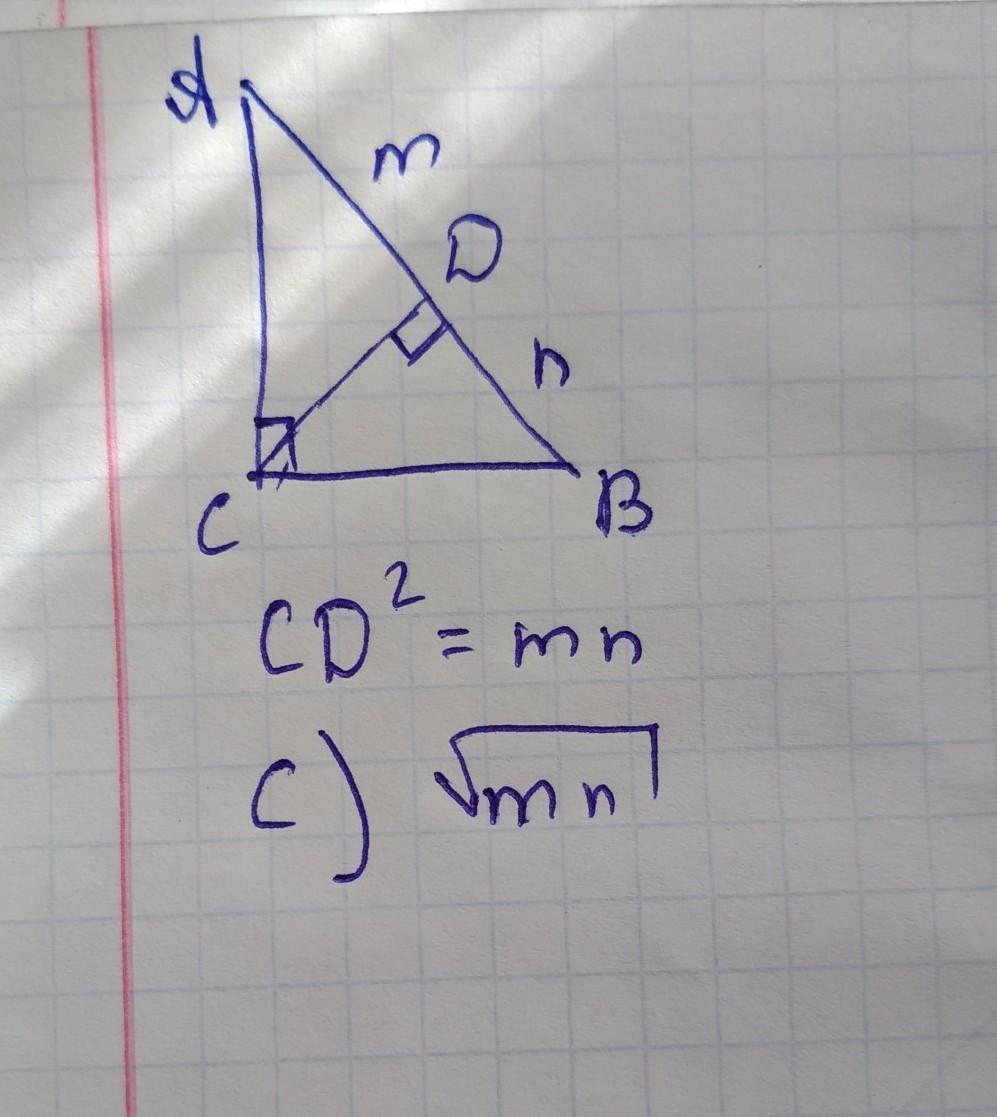 A
m
D
n
C
B
CD² = mn
C) √mn